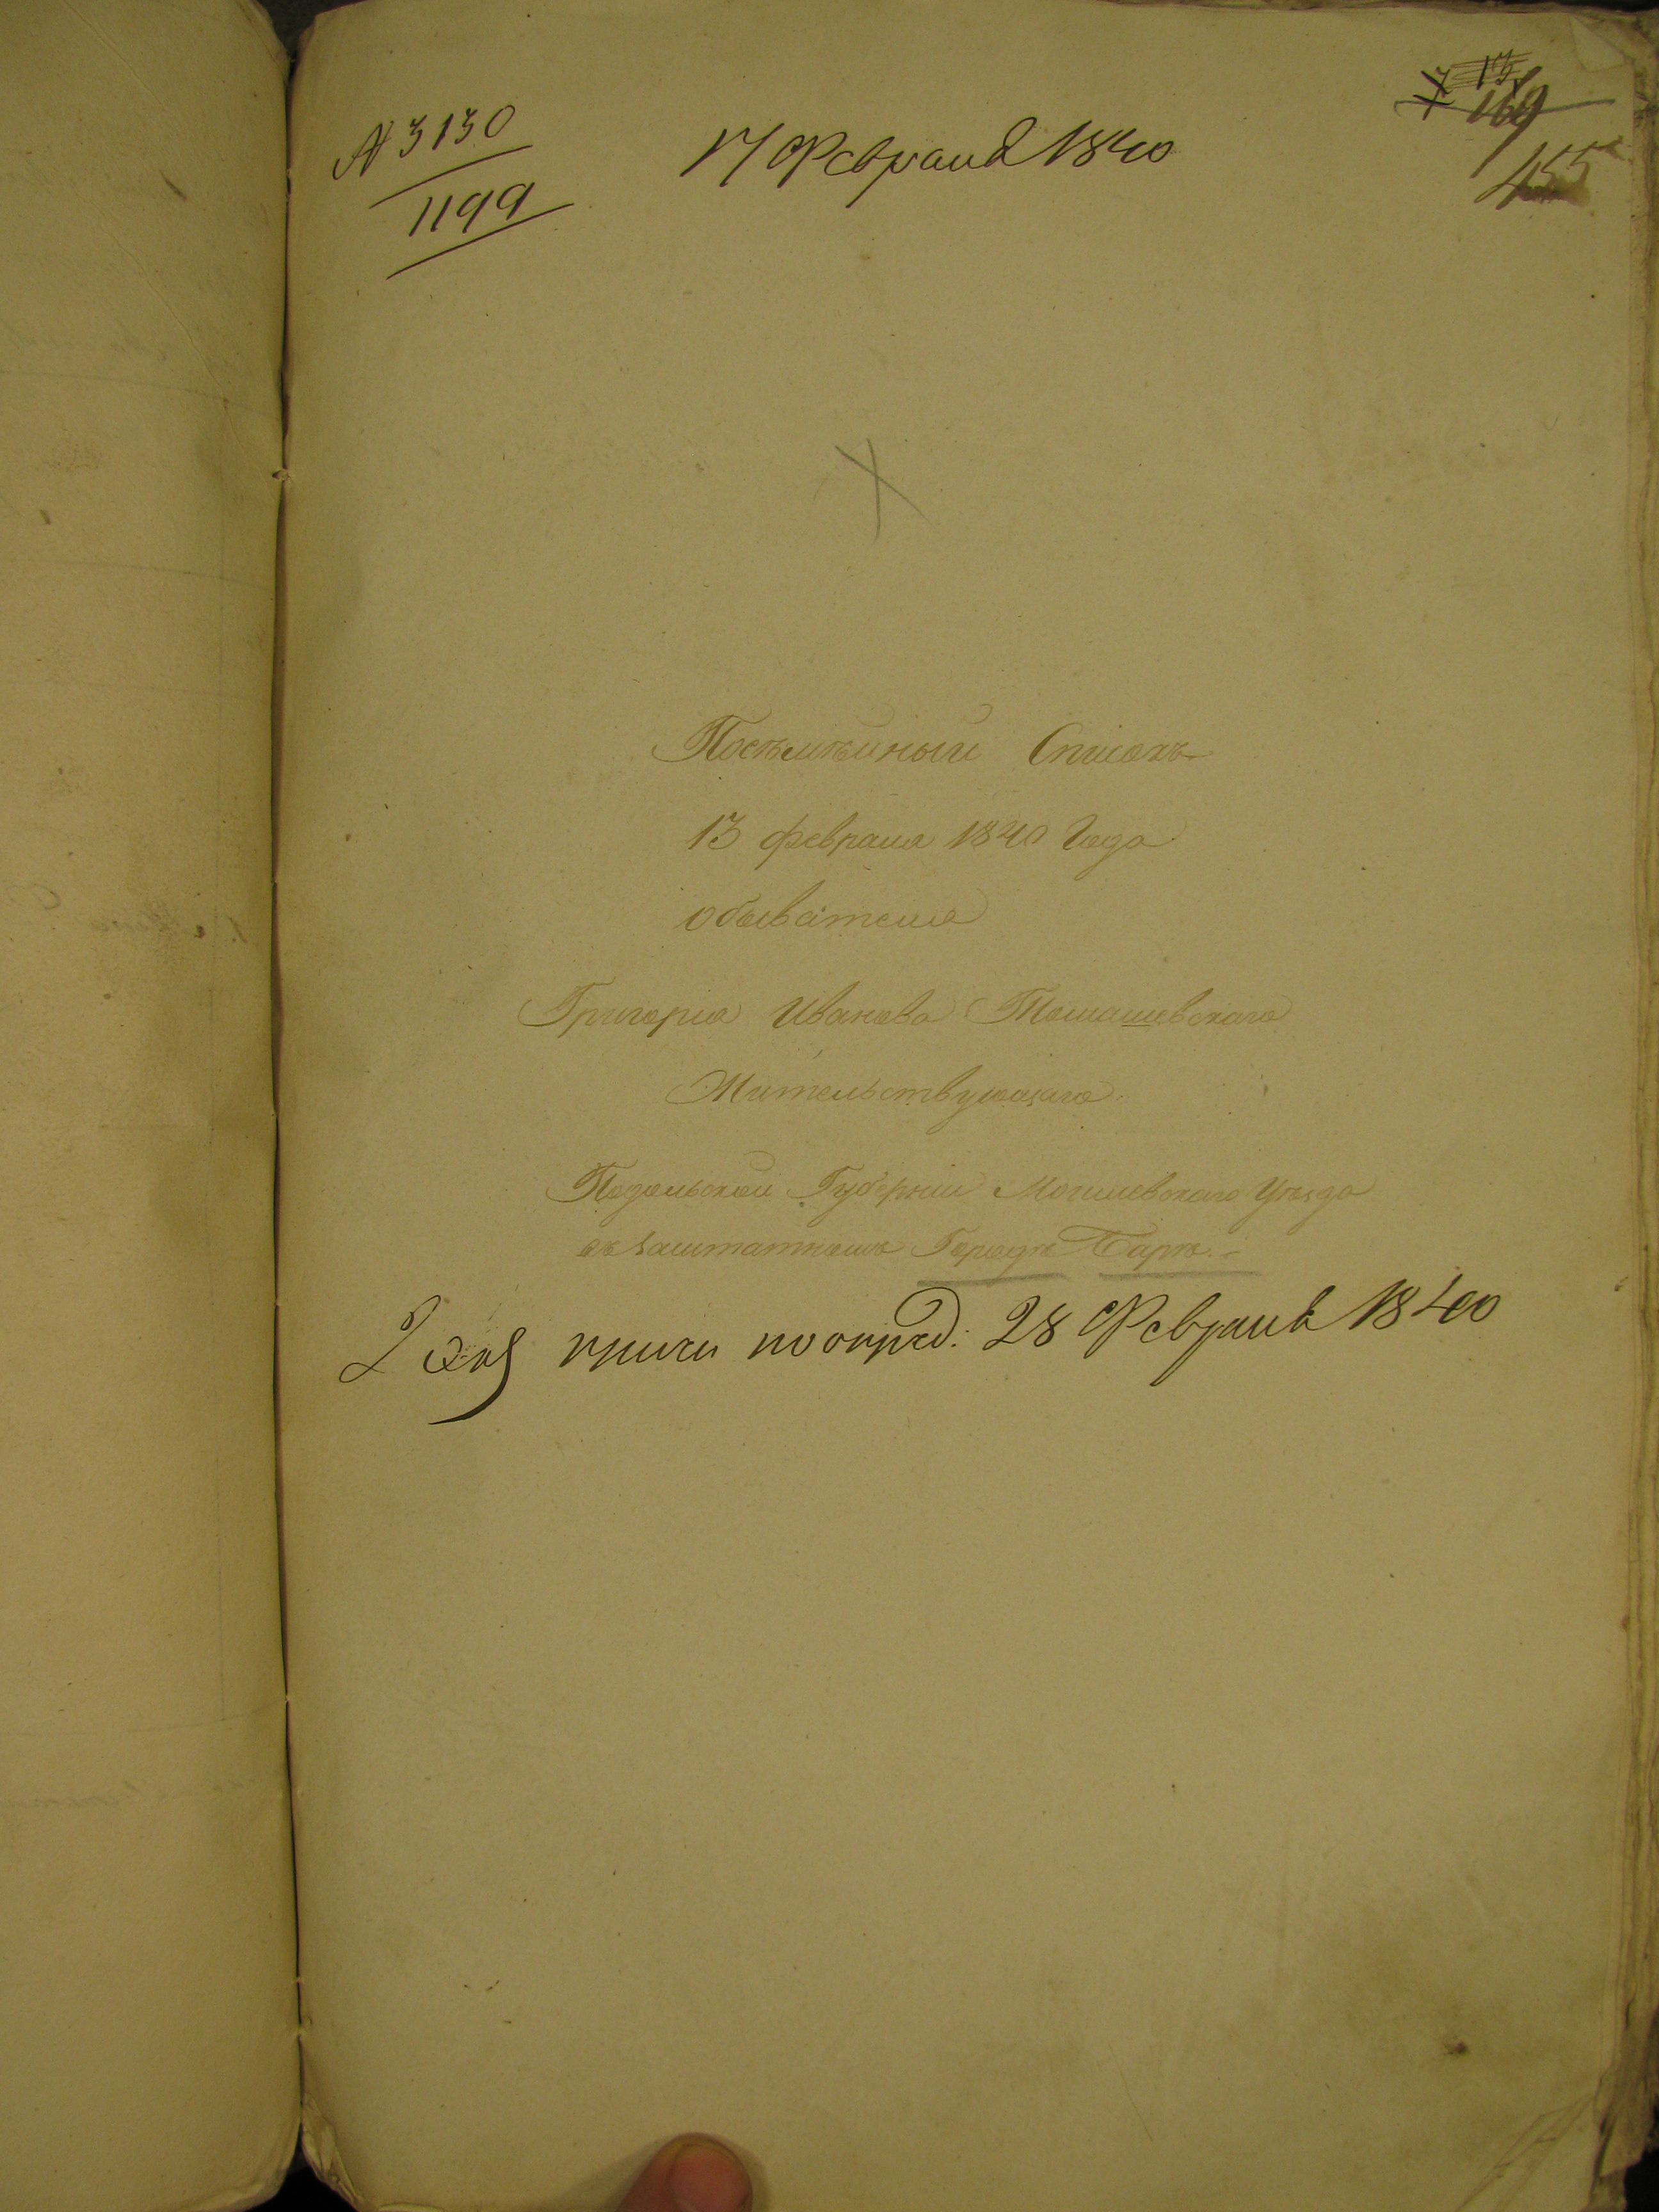 № 3130
1199
17 Февраля 1840
169
455
Посѣмѣйный Списокъ
13 февраля 1840 Года
обывателя
Григорія Иванова Томашевскаго
Жительствующаго
Подольской Губерніи Могилевскаго Уѣзда
въ Заштатномъ Городѣ Барѣ.
2 экз по опред: 28 Февраля 1840